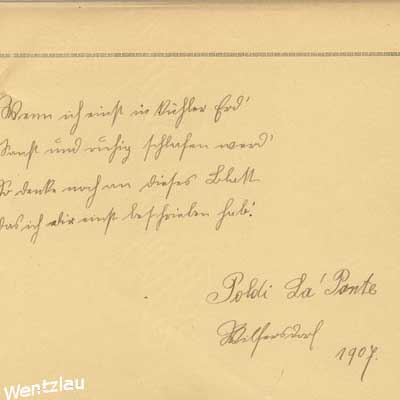 Wenn ich einst in kühler Erd'
Sanft und ruhig schlafen werd'
So denke noch an dieses Blatt
das ich dir einst beschrieben hab'.
Poldi La' Ponte
Wilfersdorf
1907.
Wentzlau